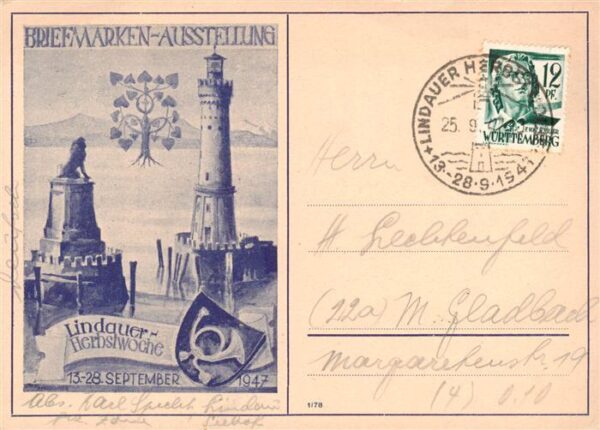 BRIEFMARKEN-AUSSTELLUNG
Lindauer-
Herbstwoche
13-28. SEPTEMBER 1947
LINDAUER HERBST
25. 9.
13.-28.9.1947
12
PF.
WÜRTTEMBERG
Herrn
H Lechtenfeld
(22a) M. Gladbach
Margaretenstr. 19
(4) 0.10
Abs. Karl Specht Lindau
1/78